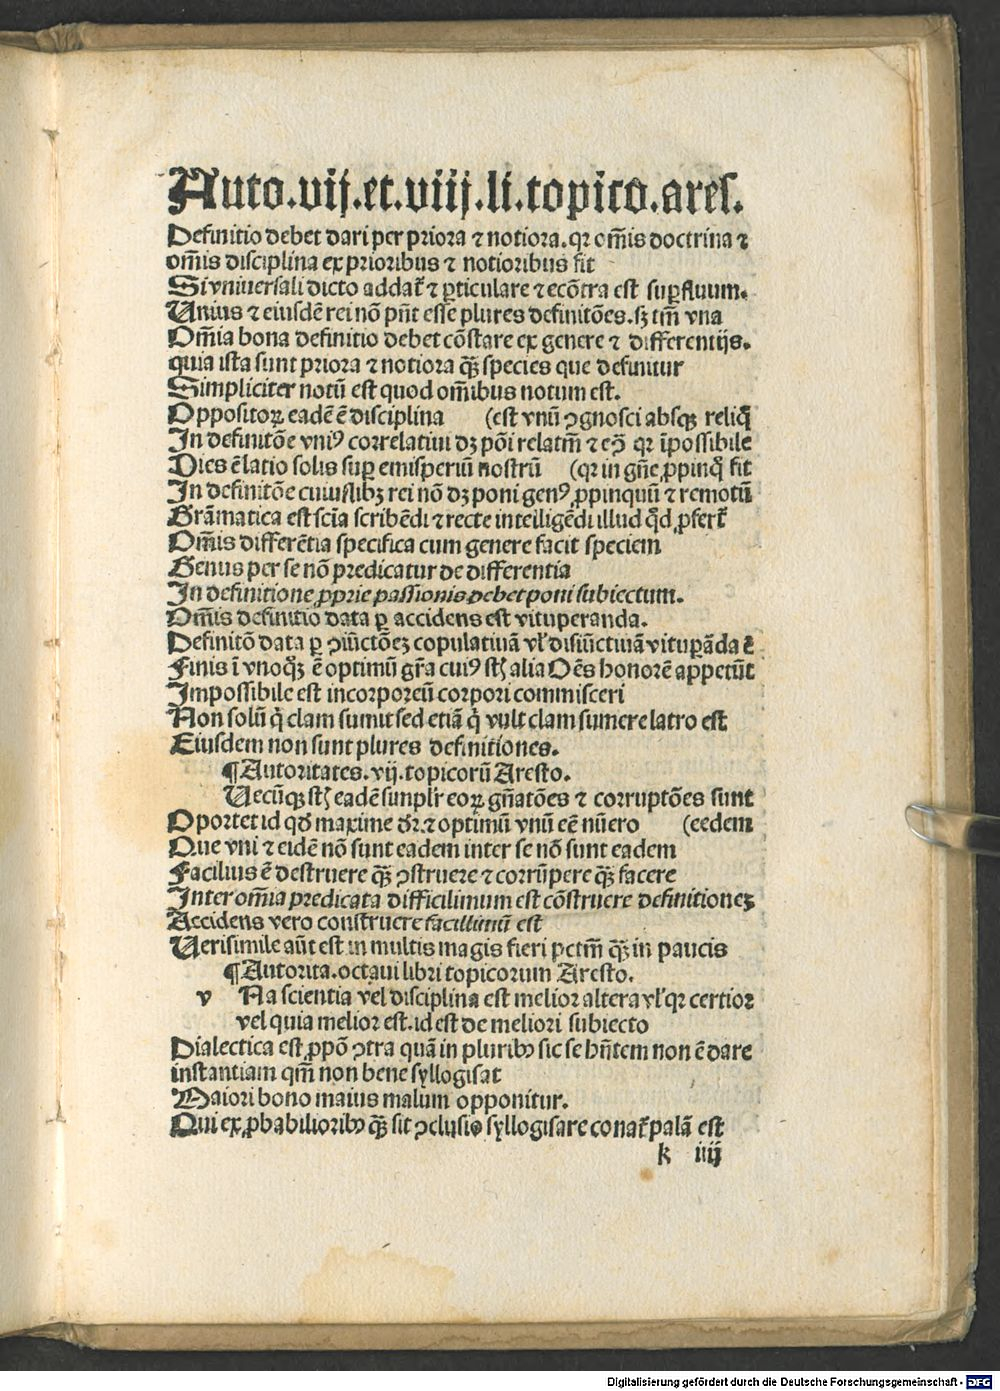 Auto.vij.et.viij.li.topico.ares.
Definitio debet dari per priora ⁊ notiora.qꝛ om̄is doctrina ⁊
om̄is disciplina ex prioribus ⁊ notioribus fit
Si vniuersali dicto addat᷑ ⁊ ꝑticulare ⁊ ecōtra est suꝑfluum.
Unius ⁊ eiusdē rei nō pn̄t esse plures definitōes.sꝫ tm̄ vna
Om̄ia bona definitio debet cōstare ex genere ⁊ differentijs.
quia ista sunt priora ⁊ notiora qȝ̄ species que definitur
Simpliciter notū est quod om̄ibus notum est.
Oppositoꝝ eadē ē disciplina (est vnū ꝯgnosci absqꝫ reliq̄
In definitōe vniꝰ correlatiui dꝫ pōi relatm̄ ⁊ eꝯ̄ qꝛ īpossibile
Dies ē latio solis suꝑ emisperiū nostrū (qꝛ in gn̄e ꝓpinq̄ fit
In definitōe cuiuslibꝫ rei nō dꝫ poni genꝰ ꝓpinquū ⁊ remotū
Grāmatica est scīa scribēdi ⁊ recte intelligēdi illud qd̄ ꝓfert᷑
Om̄is differētia specifica cum genere facit speciem
Genus per se nō predicatur de differentia
In definitione ꝓprie passionis debet poni subiectum.
Om̄is definitio data ꝑ accidens est vituperanda.
Definitō data ꝑ ꝯiūctōeꝫ copulatiuā vl̓ disiūctiuā vituꝑāda ē
Finis ī vnoqȝ̄ ē optimū gr̄a cuiꝰ st̄ alia Oēs honorē appetūt
Impossibile est incorporeū corpori commisceri
Non solū q̇ clam sumit sed etiā q̇ vult clam sumere latro est
Eiusdem non sunt plures definitiones.
¶Autoritates.vij.topicorū Aresto.
Uecūqꝫ st̄ eadē simpl̓r eoꝝ gn̄atōes ⁊ corruptōes sunt
Oportet id qd̄ maxime dr̄.⁊ optimū vnū eē nūero (eedem
Que vni ⁊ eidē nō sunt eadem inter se nō sunt eadem
Facilius ē destruere qȝ̄ ꝯstruere ⁊ corrūpere qȝ̄ facere
Inter om̄ia predicata difficilimum est cōstruere definitioneꝫ
Accidens vero construere facillimū est
Uerisimile aūt est in multis magis fieri pctm̄ qȝ̄ in paucis
¶Autorita.octaui libri topicorum Aresto.
v Na scientia vel disciplina est melior altera vl̓ qꝛ certior
vel quia melior est.id est de meliori subiecto
Dialectica est ꝓpō ꝯtra quā in pluribꝰ sic se hn̄tem non ē dare
instantiam qm̄ non bene syllogisat
Maiori bono maius malum opponitur.
Qui ex ꝓbabilioribꝰ qȝ̄ sit ꝯclusio syllogisare conat᷑ palā est
k iiij
Digitalisierung gefördert durch die Deutsche Forschungsgemeinschaft - DFG